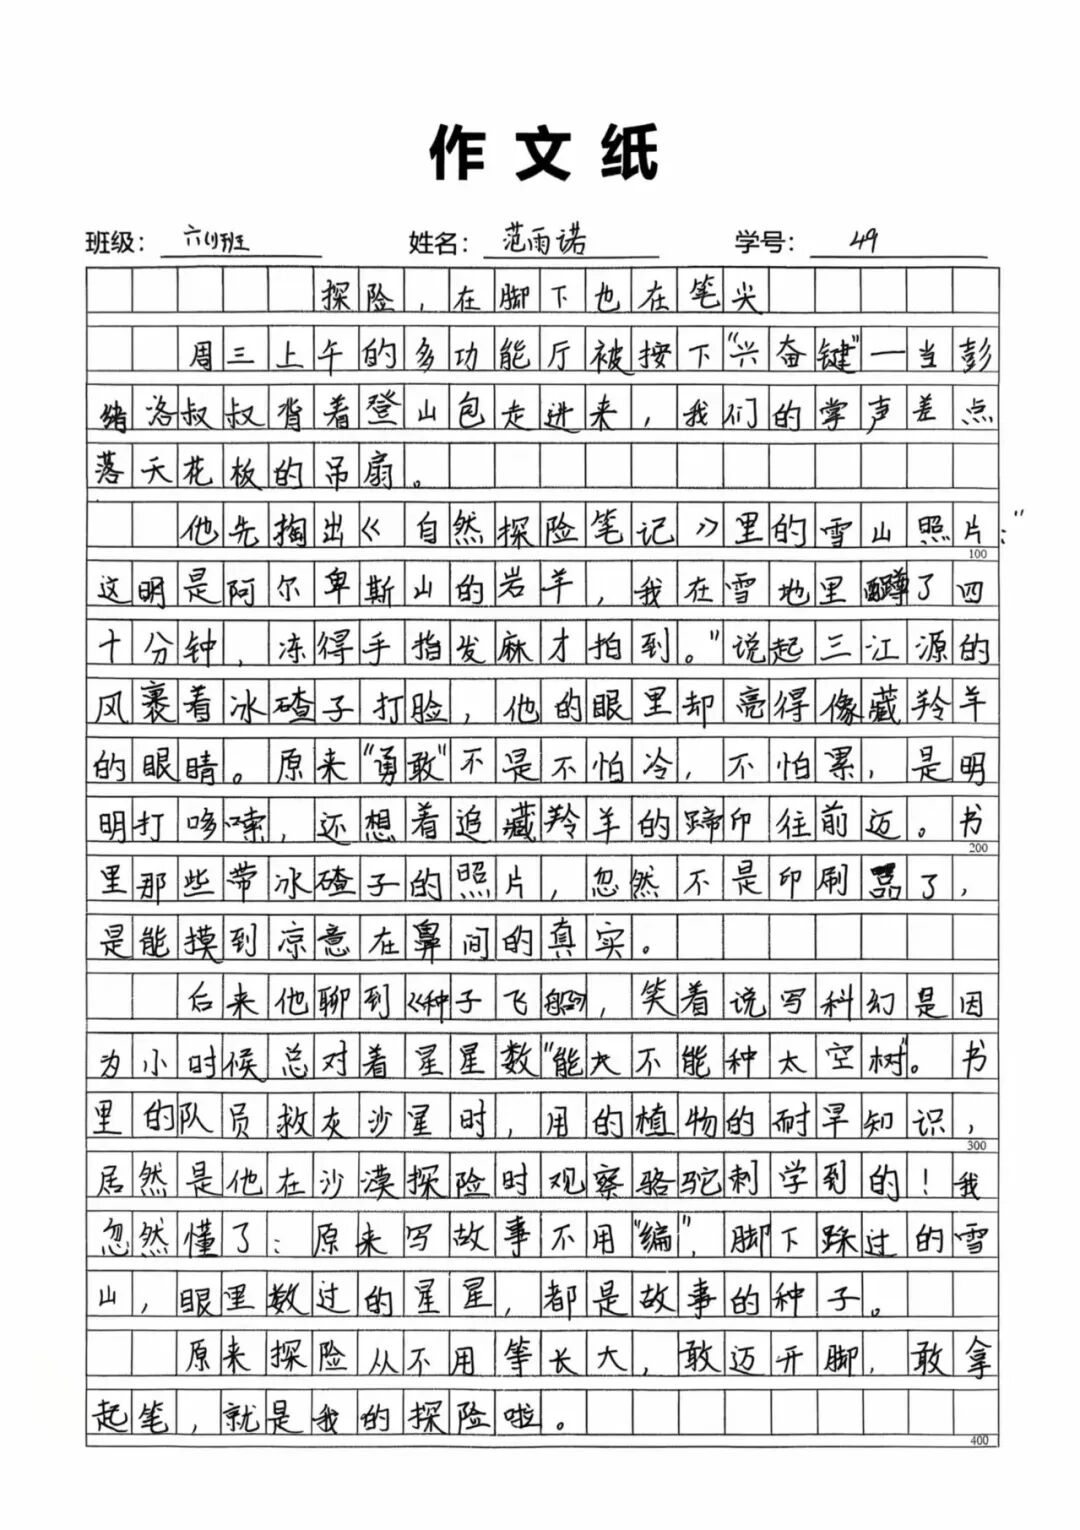 作文纸
班级： 六(1)班 姓名： 范雨诺 学号： 49
探险，在脚下也在笔尖
周三上午的多功能厅被按下“兴奋键”—当彭
绪洛叔叔背着登山包走进来，我们的掌声差点
落天花板的吊扇。
他先掏出《自然探险笔记》里的雪山照片：“
100
这明是阿尔卑斯山的岩羊，我在雪地里蹲了四
十分钟，冻得手指发麻才拍到。”说起三江源的
风裹着冰碴子打脸，他的眼里却亮得像藏羚羊
的眼睛。原来“勇敢”不是不怕冷，不怕累，是明
明打哆嗦，还想着追藏羚羊的蹄印往前迈。书
200
里那些带冰碴子的照片，忽然不是印刷品了，
是能摸到凉意在鼻间的真实。
后来他聊到《种子飞船》，笑着说写科幻是因
为小时候总对着星星数“能大不能种太空树”。书
里的队员救灰沙星时，用的植物的耐旱知识，
300
居然是他在沙漠探险时观察骆驼刺学到的！我
忽然懂了：原来写故事不用“编”，脚下踩过的雪
山，眼里数过的星星，都是故事的种子。
原来探险从不用等长大，敢迈开脚，敢拿
起笔，就是我的探险啦。
400